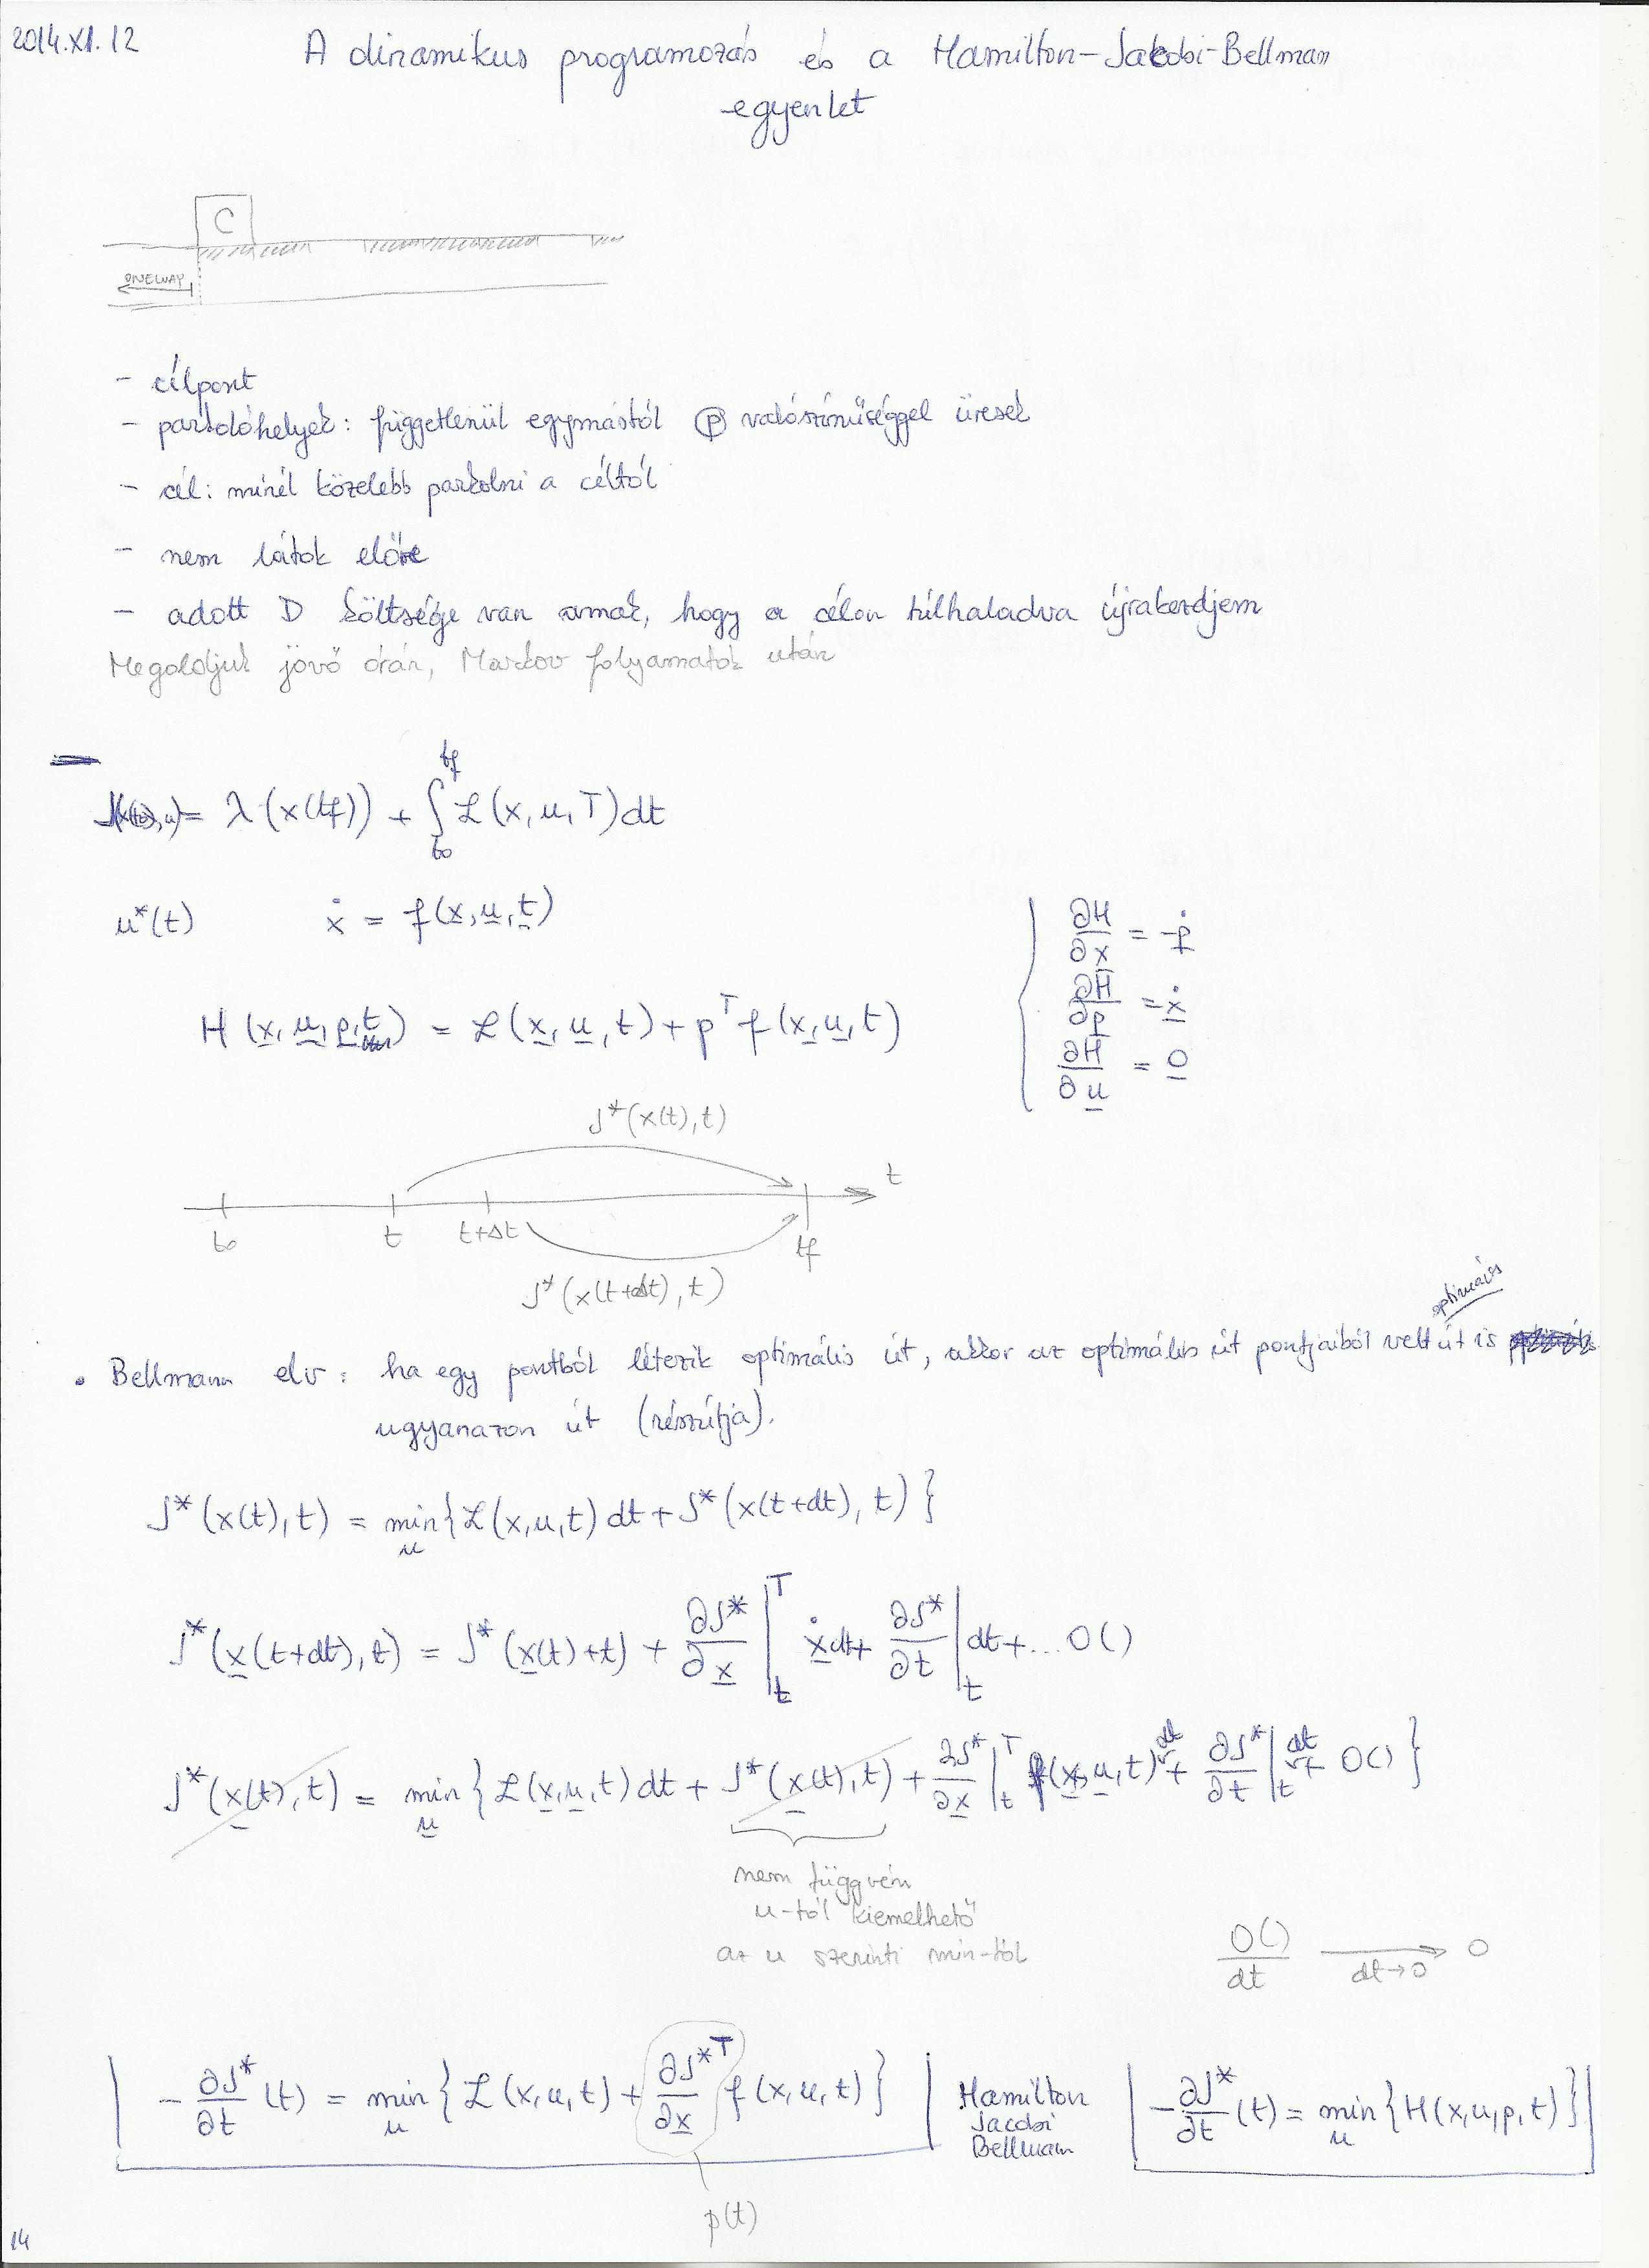 2014.XI.12
A dinamikus programozás és a Hamilton-Jacobi-Bellman
egyenlet
C
ONEWAY
- célpont
- parkolóhelyek: függetlenül egymástól p valószínűséggel üresek
- cél: minél közelebb parkolni a céltól
- nem látok előre
- adott D költsége van annak, hogy a célon túlhaladva újrakezdjem
Megoldjuk jövő órán, Markov folyamatok után
J(x(t₀),u) = λ(x(tf)) + ∫_{t₀}^{tf} ℒ(x,u,T)dt
u*(t) ẋ = f(x,u,t)
∂H/∂x = -ṗ
∂H/∂p = ẋ
∂H/∂u = 0
H(x,u,p,t) = ℒ(x,u,t) + pᵀf(x,u,t)
J*(x(t),t)
t
t₀ t t+Δt tf
J*(x(t+Δt),t)
optimális
• Bellmann elv: ha egy pontból létezik optimális út, akkor az optimális út pontjaiból vett út is
ugyanazon út (részútja).
J*(x(t),t) = min_u {ℒ(x,u,t)dt + J*(x(t+dt),t)}
J*(x(t+dt),t) = J*(x(t)+t) + ∂J*/∂x|ₜᵀ ẋdt + ∂J*/∂t|ₜ dt + ... O()
J*(x(t),t) = min_u {ℒ(x,u,t)dt + J*(x(t),t) + ∂J*/∂x|ₜᵀ f(x,u,t)dt + ∂J*/∂t|ₜ dt + O()}
nem függvén
u-tól kiemelhető
az u szerinti min-ból
O()/dt → 0
dt→0
-∂J*/∂t (t) = min_u {ℒ(x,u,t) + ∂J*ᵀ/∂x f(x,u,t)}
Hamilton
Jacobi
Bellman
-∂J*/∂t (t) = min_u {H(x,u,p,t)}
p(t)
14